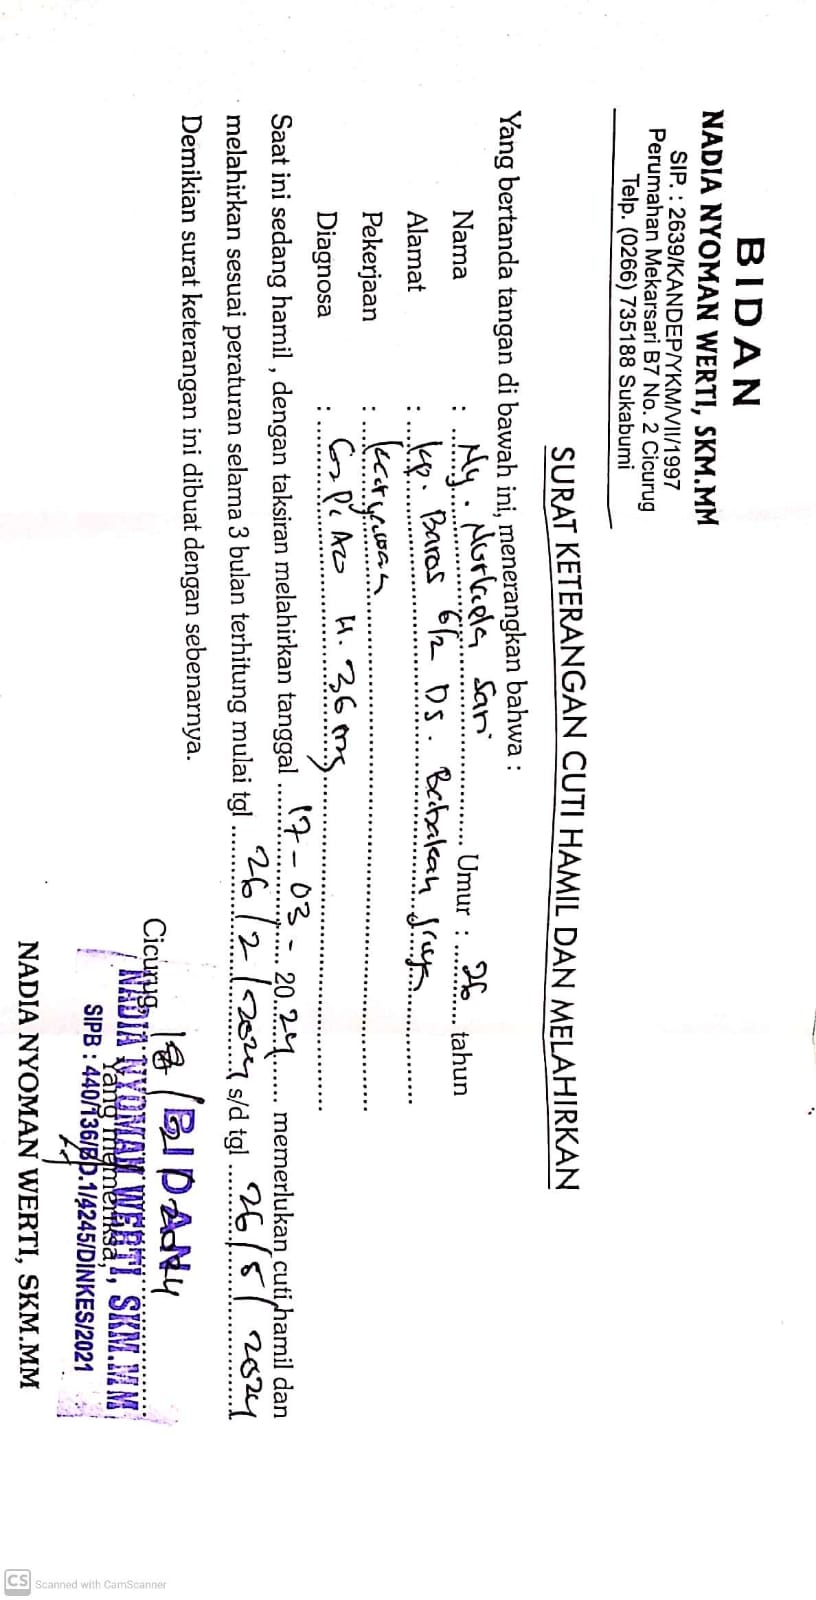 BIDAN
NADIA NYOMAN WERTI, SKM.MM
SIP. : 2639/KANDEP/YKM/VII/1997
Perumahan Mekarsari B7 No. 2 Cicurug
Telp. (0266) 735188 Sukabumi
SURAT KETERANGAN CUTI HAMIL DAN MELAHIRKAN
Yang bertanda tangan di bawah ini, menerangkan bahwa :
Nama : Ny. Nurlaela Sari Umur : 26 tahun
Alamat : Kp. Baros 6/2 Ds. Babakan Jaya
Pekerjaan : Karyawan
Diagnosa : G2 P1 A0 H. 36 mg
Saat ini sedang hamil , dengan taksiran melahirkan tanggal 17 - 03 - 2024 memerlukan cuti hamil dan
melahirkan sesuai peraturan selama 3 bulan terhitung mulai tgl 26/2/2024 s/d tgl 26/5/2024
Demikian surat keterangan ini dibuat dengan sebenarnya.
Cicurug, 18/2 2024
BIDAN
Yang memeriksa,
NADIA NYOMAN WERTI, SKM.MM
SIPB : 440/136/BD.1/4245/DINKES/2021
NADIA NYOMAN WERTI, SKM.MM
CS Scanned with CamScanner